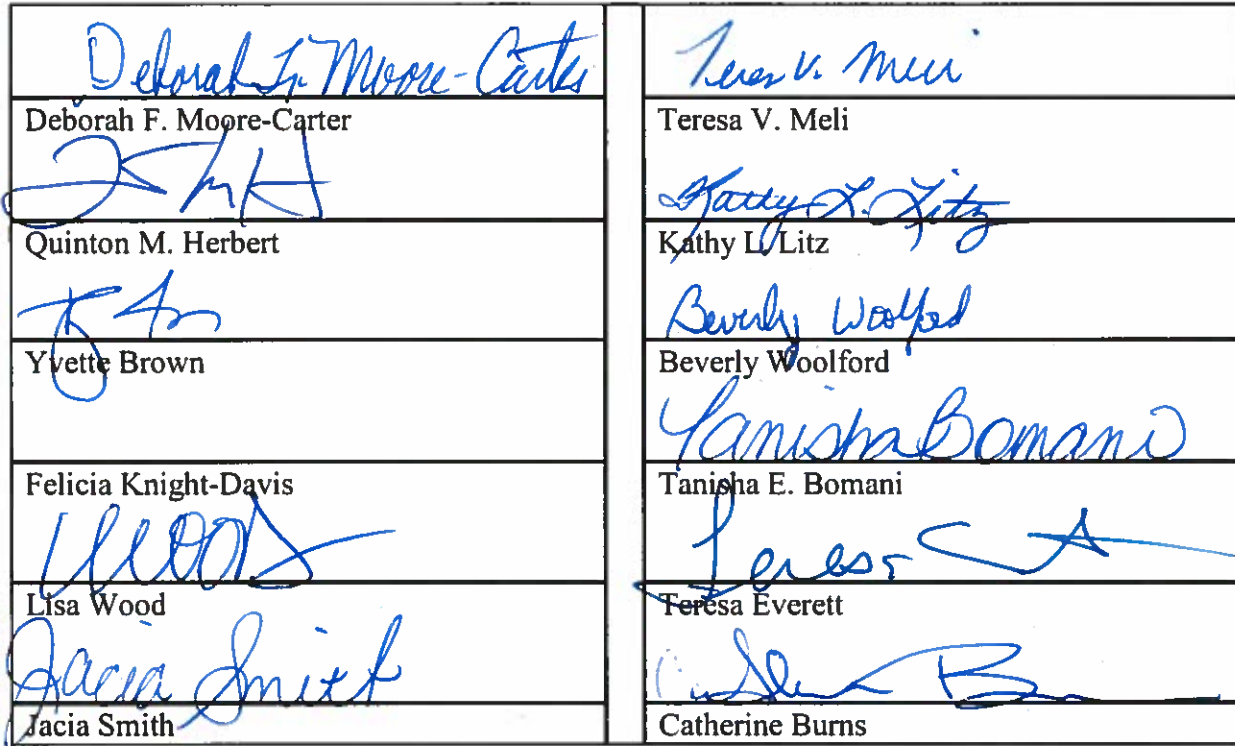 Deborah F. Moore-Carter
Deborah F. Moore-Carter
Quinton M. Herbert
Yvette Brown
Felicia Knight-Davis
Lisa Wood
Jacia Smith
Jacia Smith
Teresa V. Meli
Kathy L. Litz
Kathy L. Litz
Beverly Woolford
Beverly Woolford
Tanisha Bomani
Tanisha E. Bomani
Teresa
Teresa Everett
Catherine Burns